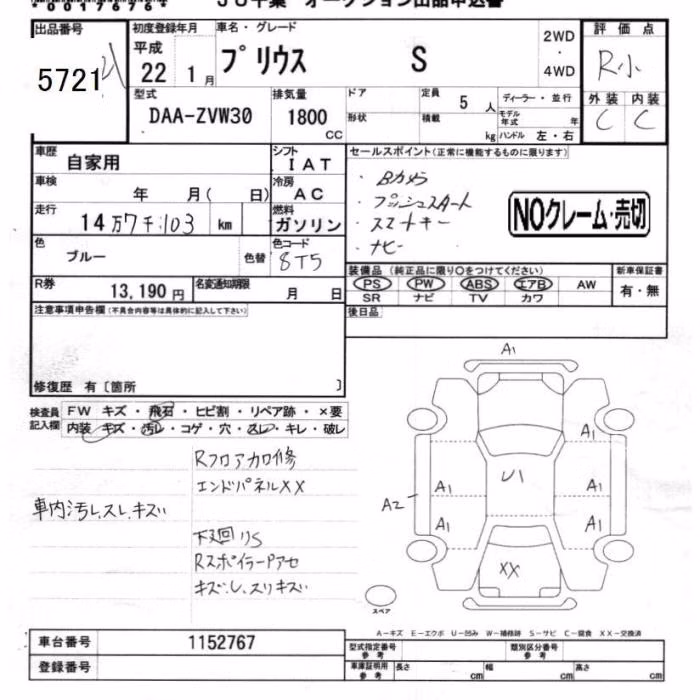 JU千葉 オークション出品申込書
出品番号 初度登録年月 車名・グレード 2WD ・ 4WD 評価点
5721 平成 22 1月 プリウス S R小
型式 DAA-ZVW30 排気量 1800 CC ドア 定員 5人 ディーラー・並行 外装 内装
形状 積載 kg モデル年式 年 ハンドル 左・右 C C
車歴 自家用 シフト IAT セールスポイント(正常に機能するものに限ります)
車検 年 月( 日) 冷房 AC ・Bカメラ
・プッシュスタート
走行 14万7千103 km 燃料 ガソリン ・スマートキー NOクレーム・売切
・ナビー
色 ブルー 色替 色コード 8T5
装備品(純正品に限り○をつけてください) 新車保証書
PS PW ABS エアB AW 有・無
R券 13,190円 名変通知期限 月 日 SR ナビ TV カワ
注意事項申告欄(不具合内容等は具体的に記入して下さい) 後日品
修復歴 有〔箇所 〕
検査員記入欄 FW キズ・飛石・ヒビ割・リペア跡・×要
内装 キズ・汚レ・コゲ・穴・スレ・キレ・破レ
A1
RフロアカロR修
エンドパネルXX
車内汚し、スレ、キズ
下廻りS
RスポイラーPアセ
キズ、し、スリキズ
A1
U1
A1 A1
A2
A1 A1
XX
スペア
A-キズ E-エクボ U-凹み W-補修跡 S-サビ C-腐食 XX-交換済
車台番号 1152767 型式指定番号 参考 類別区分番号 参考
登録番号 車庫証明用 参考 長さ cm 幅 cm 高さ cm